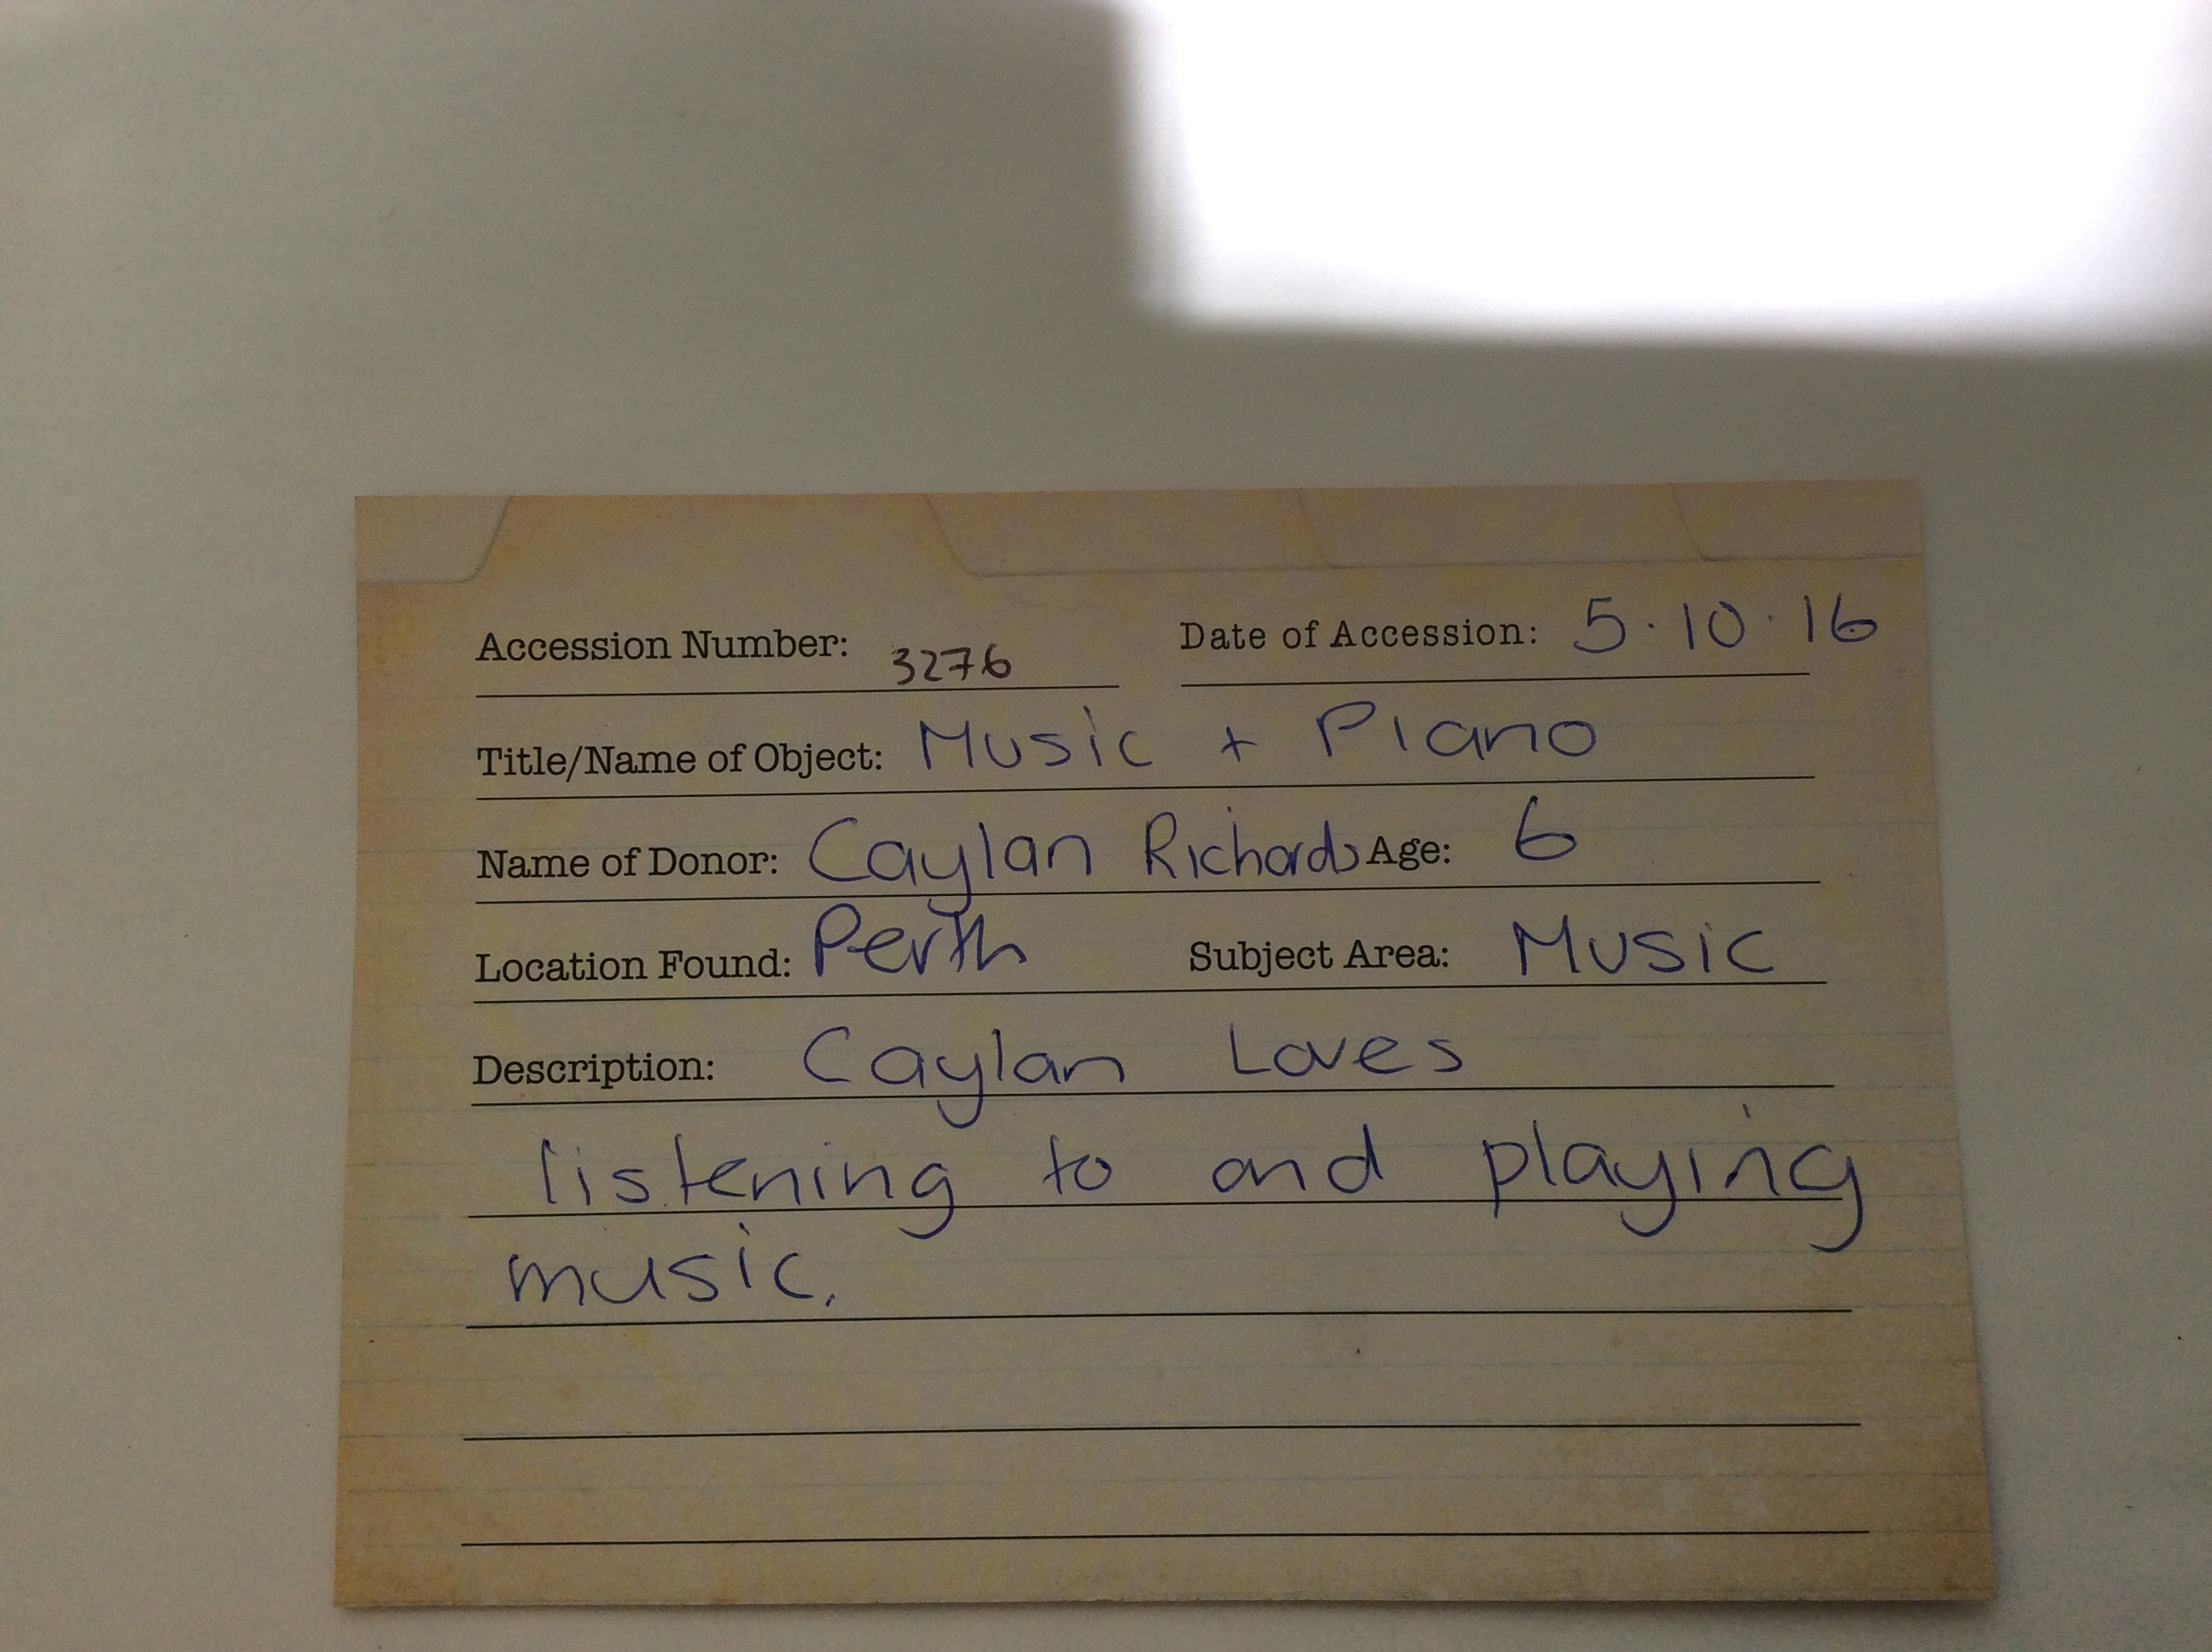 Accession Number: 3276 Date of Accession: 5.10.16
Title/Name of Object: Music + Piano
Name of Donor: Caylan Richards Age: 6
Location Found: Perth Subject Area: Music
Description: Caylan Loves
listening to and playing
music.